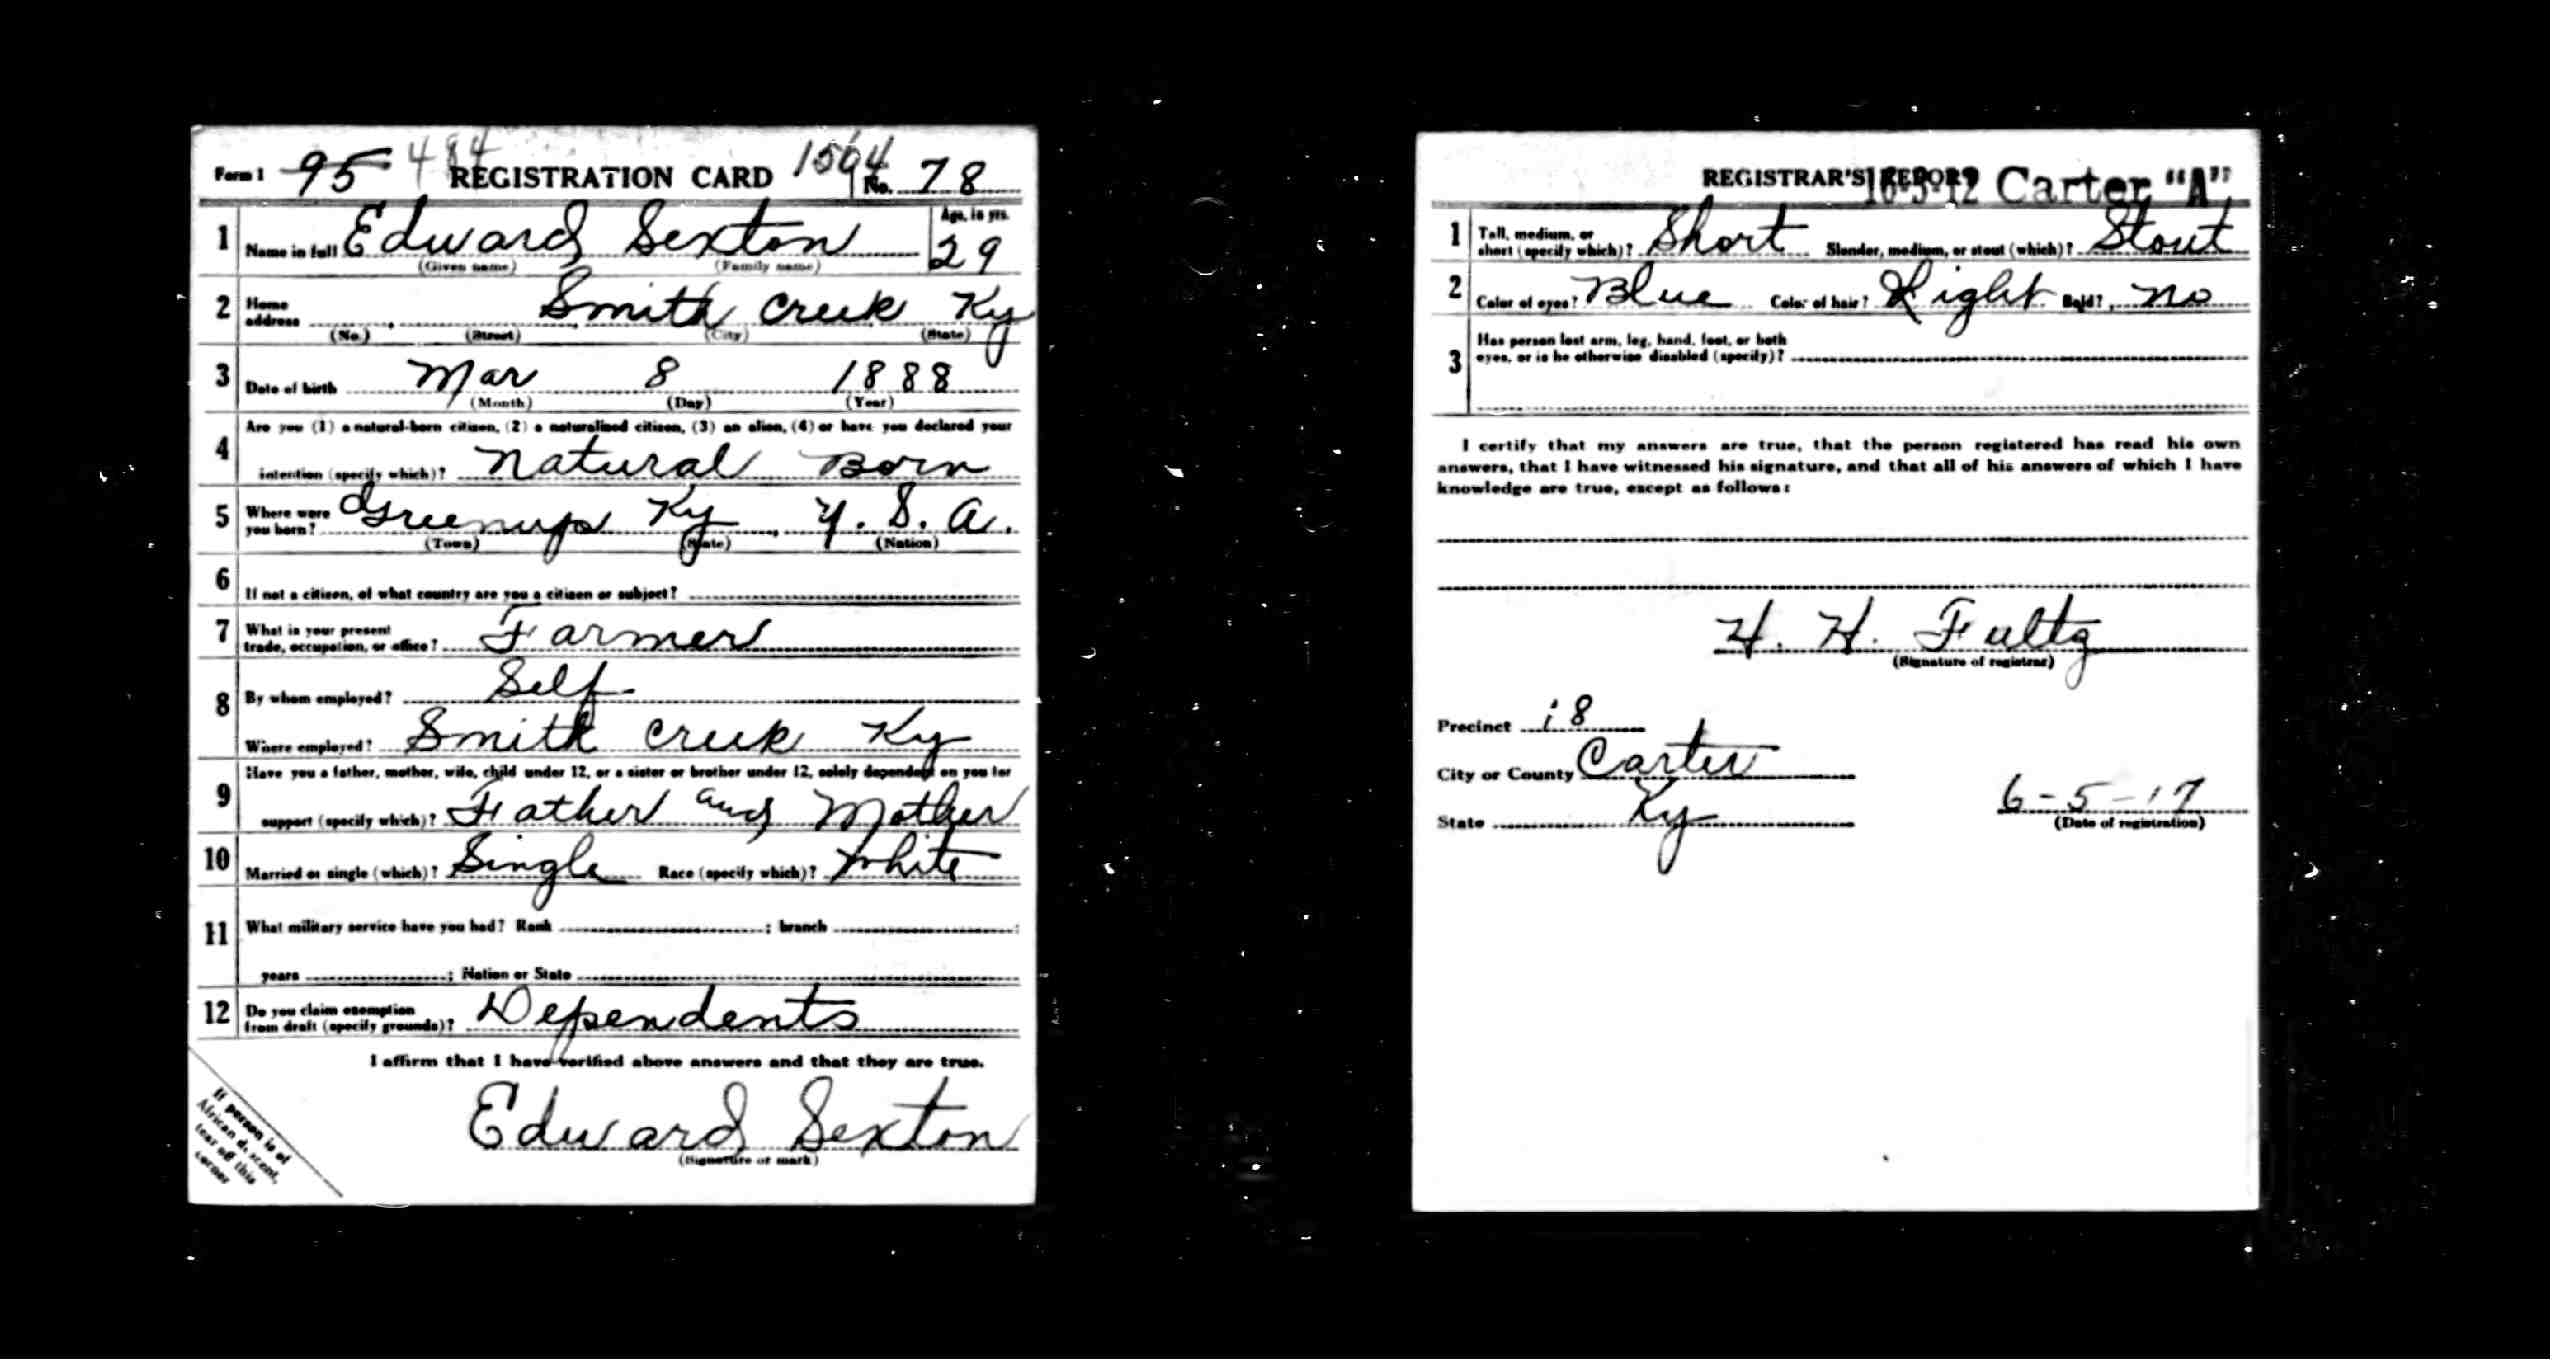 484 1594
Form 1 95 REGISTRATION CARD No. 78
1 Name in full Edward Sexton Age, in yrs. 29
(Given name) (Family name)
2 Home address Smith Creek Ky
(No.) (Street) (City) (State)
3 Date of birth Mar 8 1888
(Month) (Day) (Year)
4 Are you (1) a natural-born citizen, (2) a naturalized citizen, (3) an alien, (4) or have you declared your
intention (specify which)? Natural Born
5 Where were you born? Greenup Ky U. S. A.
(Town) (State) (Nation)
6 If not a citizen, of what country are you a citizen or subject?
7 What is your present trade, occupation, or office? Farmer
8 By whom employed? Self
Where employed? Smith Creek Ky
9 Have you a father, mother, wife, child under 12, or a sister or brother under 12, solely dependent on you for
support (specify which)? Father and Mother
10 Married or single (which)? Single Race (specify which)? White
11 What military service have you had? Rank ; branch ;
years ; Nation or State
12 Do you claim exemption from draft (specify grounds)? Dependents
I affirm that I have verified above answers and that they are true.
Edward Sexton
(Signature or mark)
If person is of
African descent,
tear off this
corner
REGISTRAR'S REPORT 16-3-12 Carter "A"
1 Tall, medium, or short (specify which)? Short Slender, medium, or stout (which)? Stout
2 Color of eyes? Blue Color of hair? Light Bald? no
3 Has person lost arm, leg, hand, foot, or both
eyes, or is he otherwise disabled (specify)?
I certify that my answers are true, that the person registered has read his own
answers, that I have witnessed his signature, and that all of his answers of which I have
knowledge are true, except as follows:
H. H. Fultz
(Signature of registrar)
Precinct 18
City or County Carter
State Ky 6-5-17
(Date of registration)